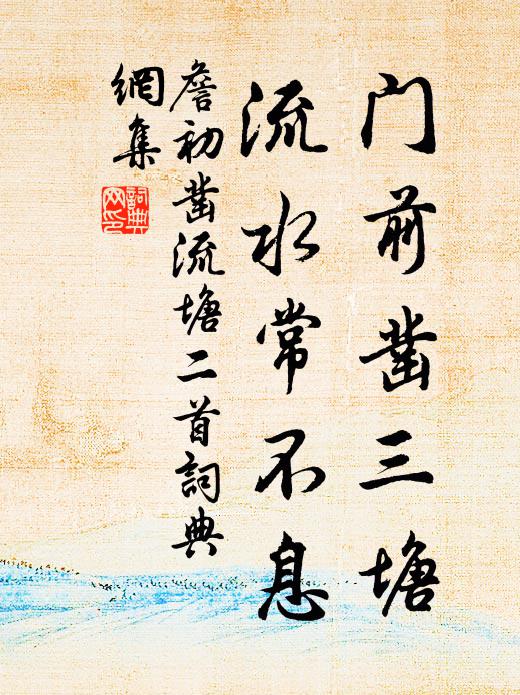 门前凿三塘
流水常不息
詹初凿流塘二首詞典
網集
詞典网印